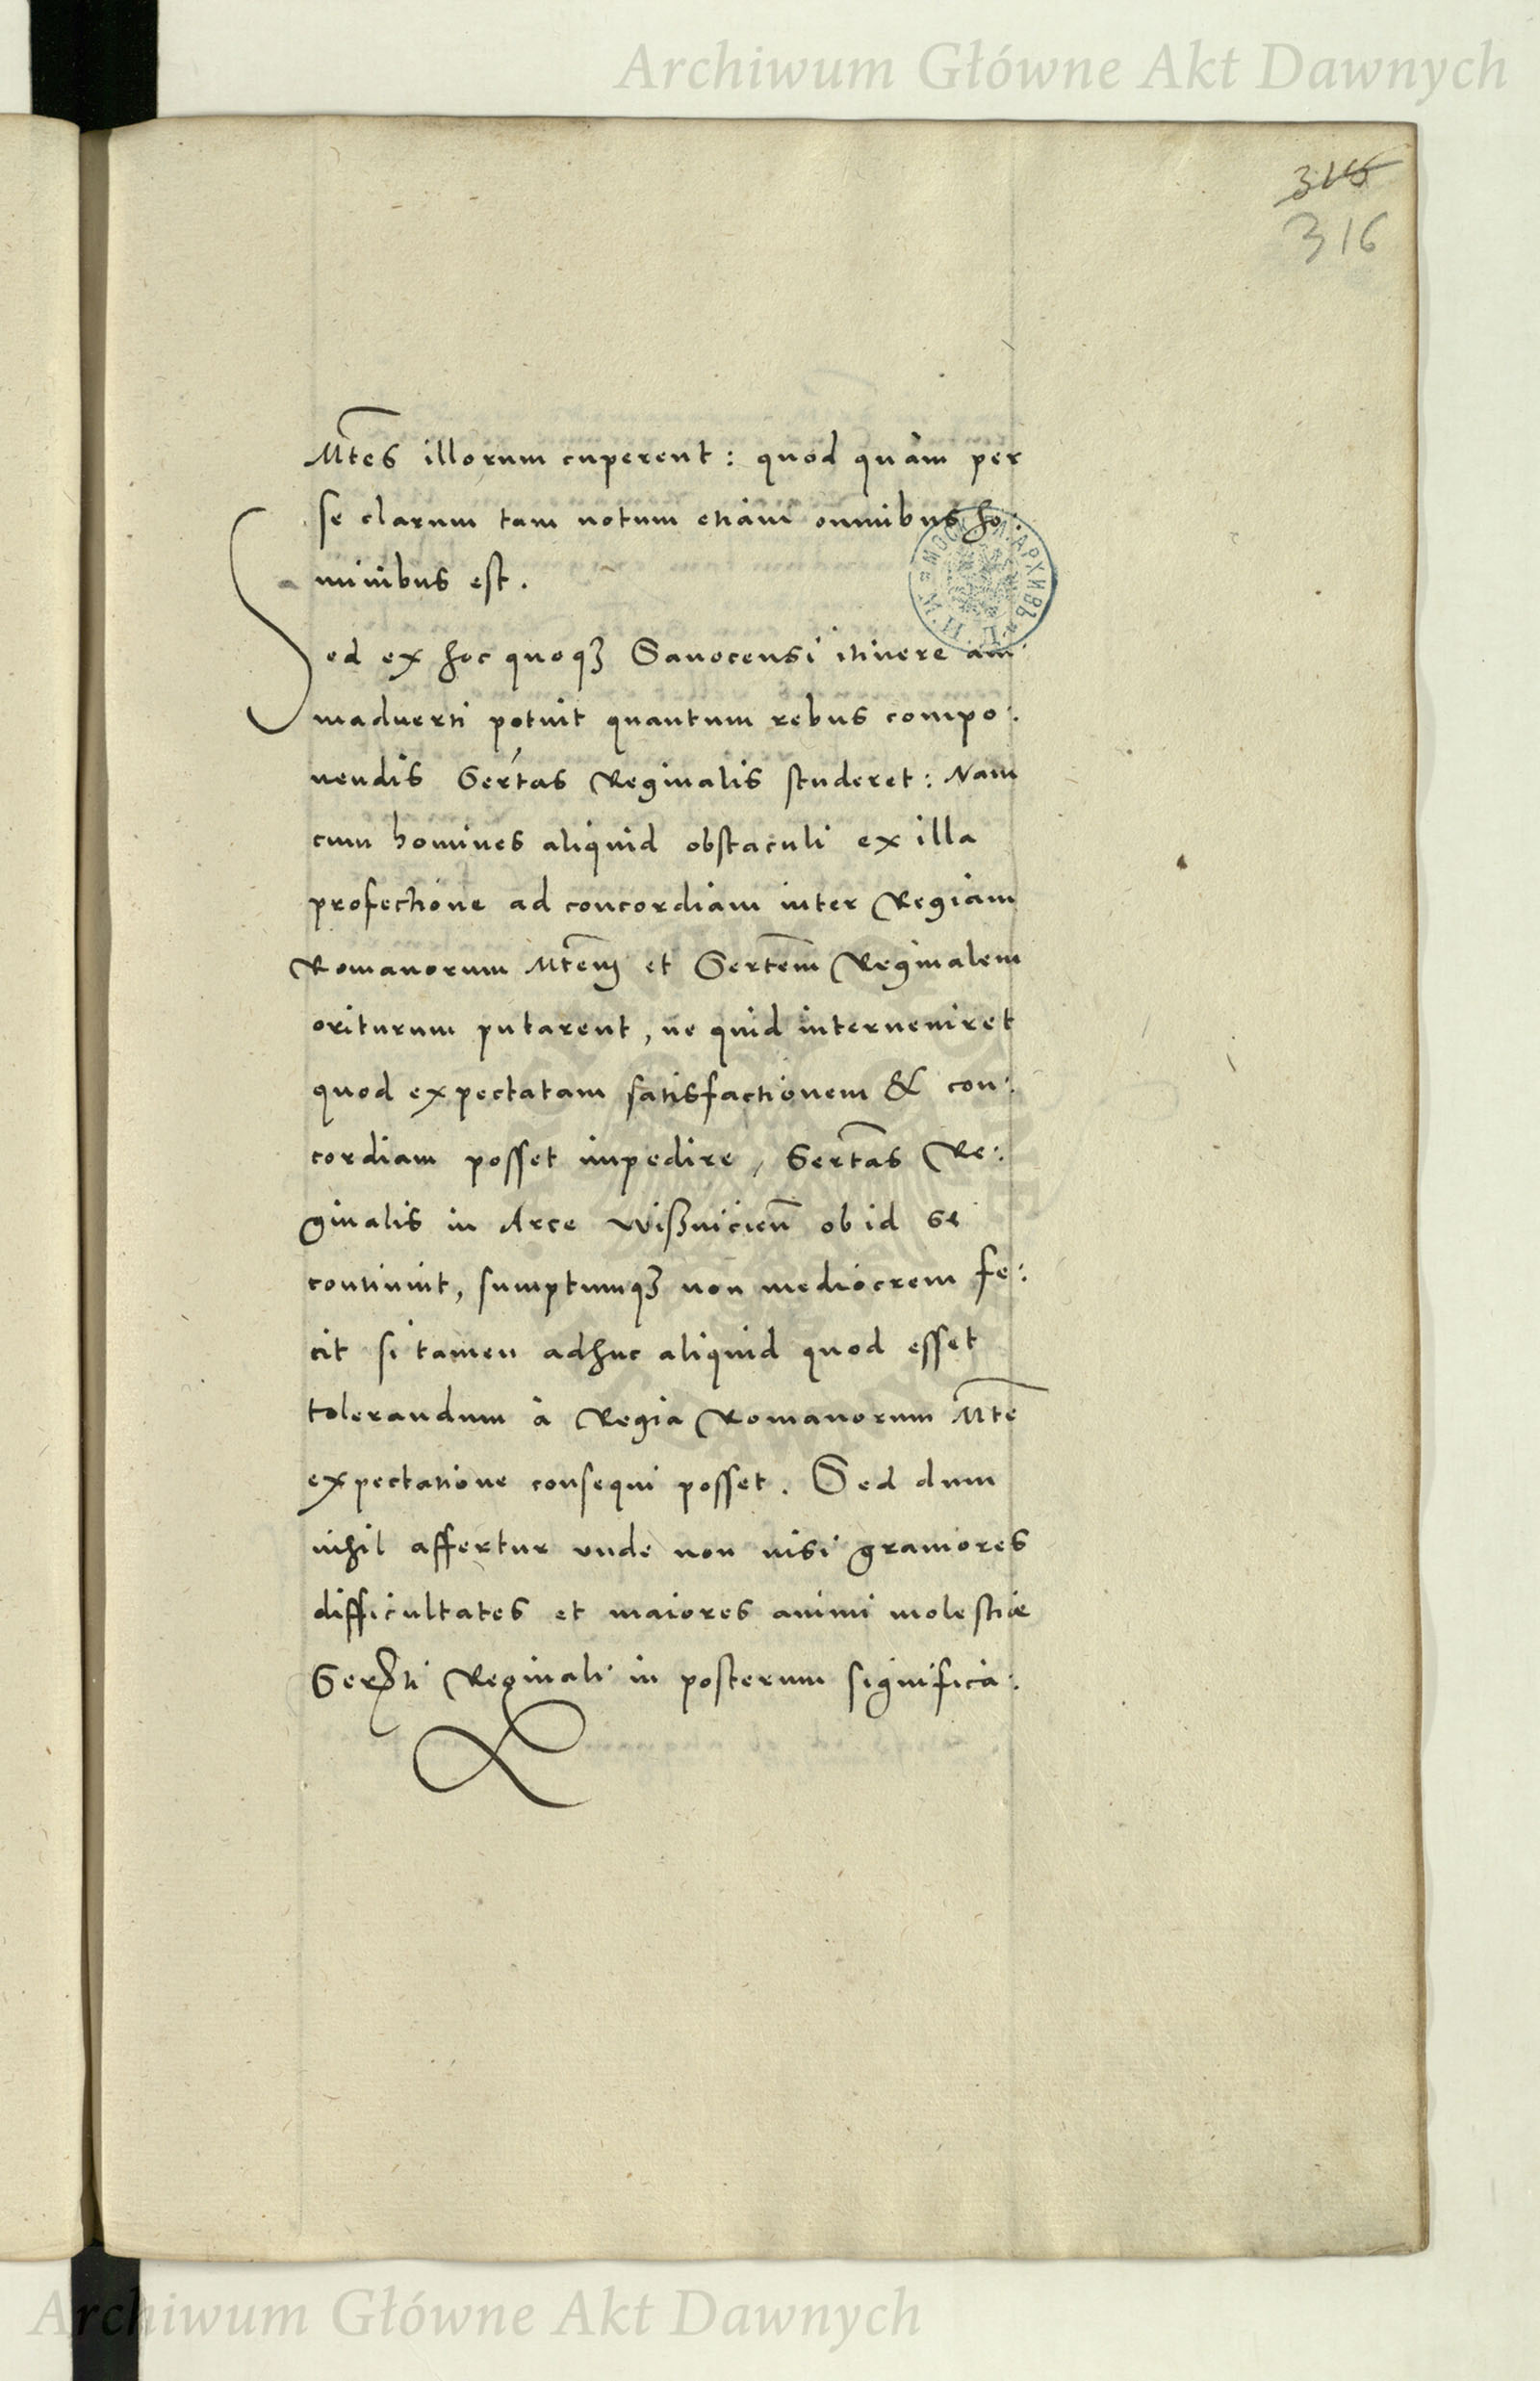 Archiwum Główne Akt Dawnych
316
Mtes illorum cuperent: quod quàm per
se clarum tam notum etiam omnibus ho:
minibus est.
Sed ex hoc quoq3 Sanocensi itinere ani
maduerti potuit quantum rebus compo:
nendis Sertas Reginalis studeret: Nam
cum homines aliquid obstaculi ex illa
profectione ad concordiam inter Regiam
Romanorum Mtem et Sertem Reginalem
oriturum putarent, ne quid interueniret
quod expectatam satisfactionem & con:
cordiam posset impedire, Sertas Re:
ginalis in Arce Wißnicien ob id se
continuit, sumptumq3 non mediocrem fe:
cit si tamen adhuc aliquid quod esset
tolerandum à Regia Romanorum Mte
expectatione consequi posset. Sed dum
nihil affertur unde non nisi grauiores
difficultates et maiores animi molestiæ
Serti Reginali in posterum significa:
Archiwum Główne Akt Dawnych